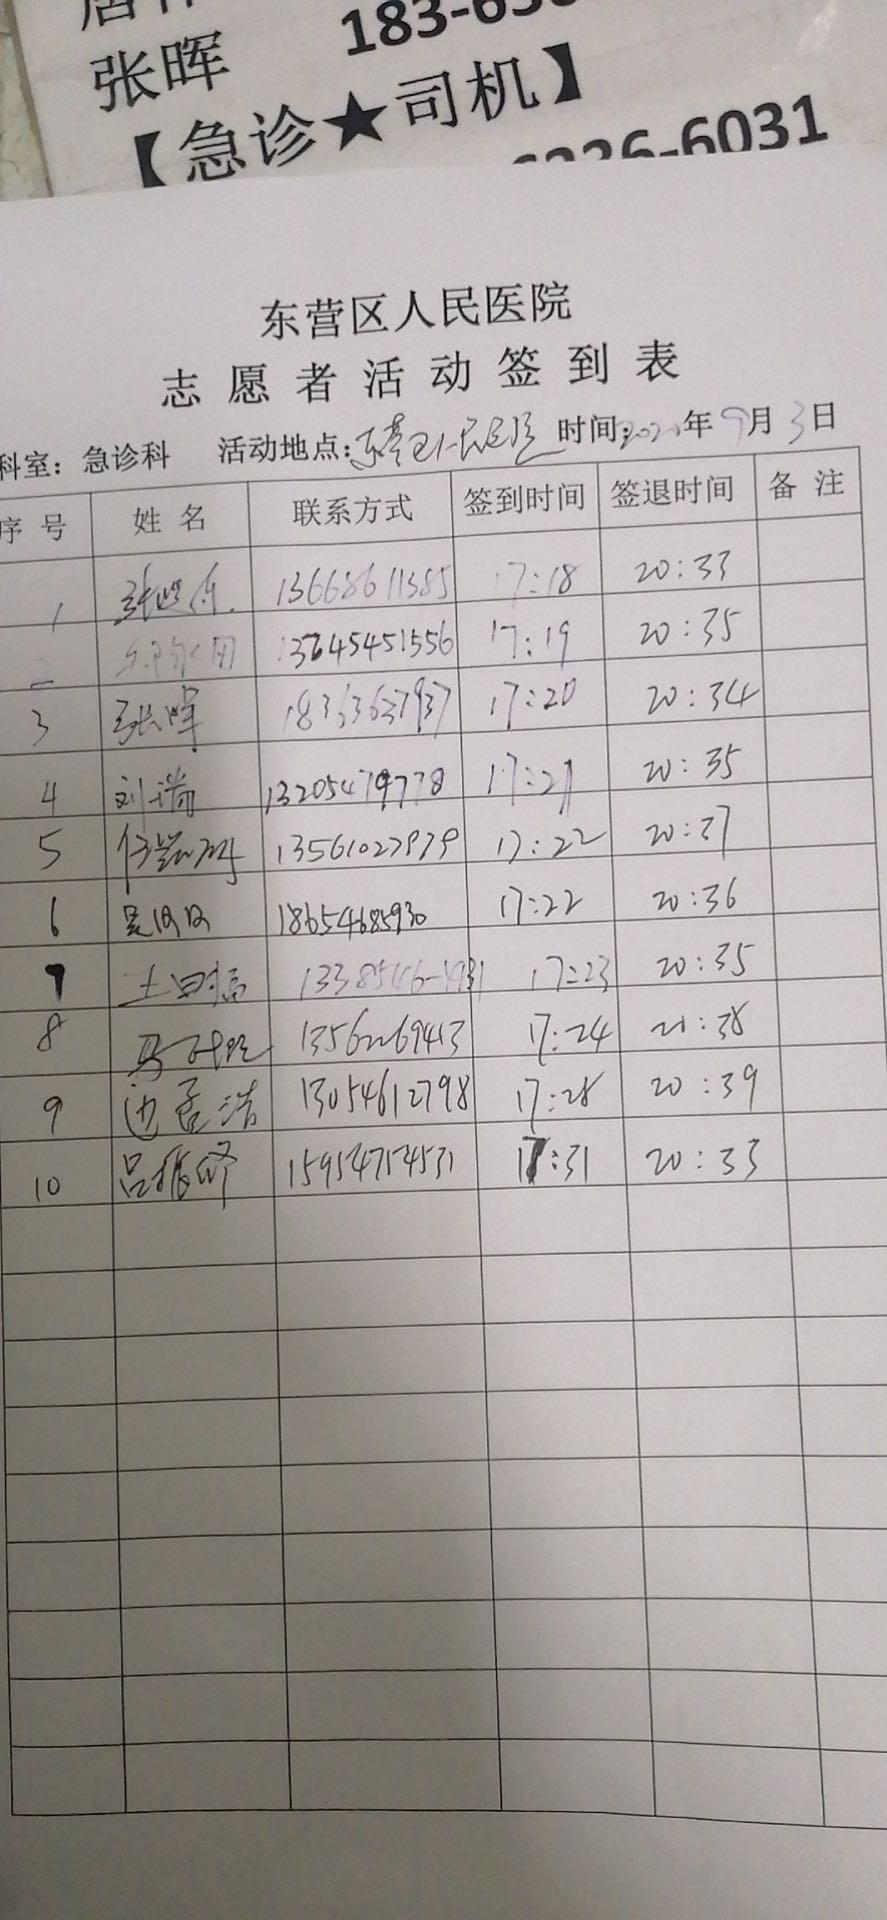 张晖 183-63
【急诊★司机】
6226-6031
东营区人民医院
志愿者活动签到表
科室：急诊科 活动地点：东营区人民医院 时间：202 年9月3日
序号 姓名 联系方式 签到时间 签退时间 备注
1 13668611385 17:18 20:33
2 13645451556 17:19 20:35
3 张晖 18363637937 17:20 20:34
4 刘瑞 13205479778 17:21 20:35
5 13561027979 17:22 20:37
6 吴汉汉 18654685930 17:22 20:36
7 17:23 20:35
8 13562269413 17:24 21:38
9 边孟浩 13054612798 17:28 20:39
10 吕振修 15954754531 17:31 20:33